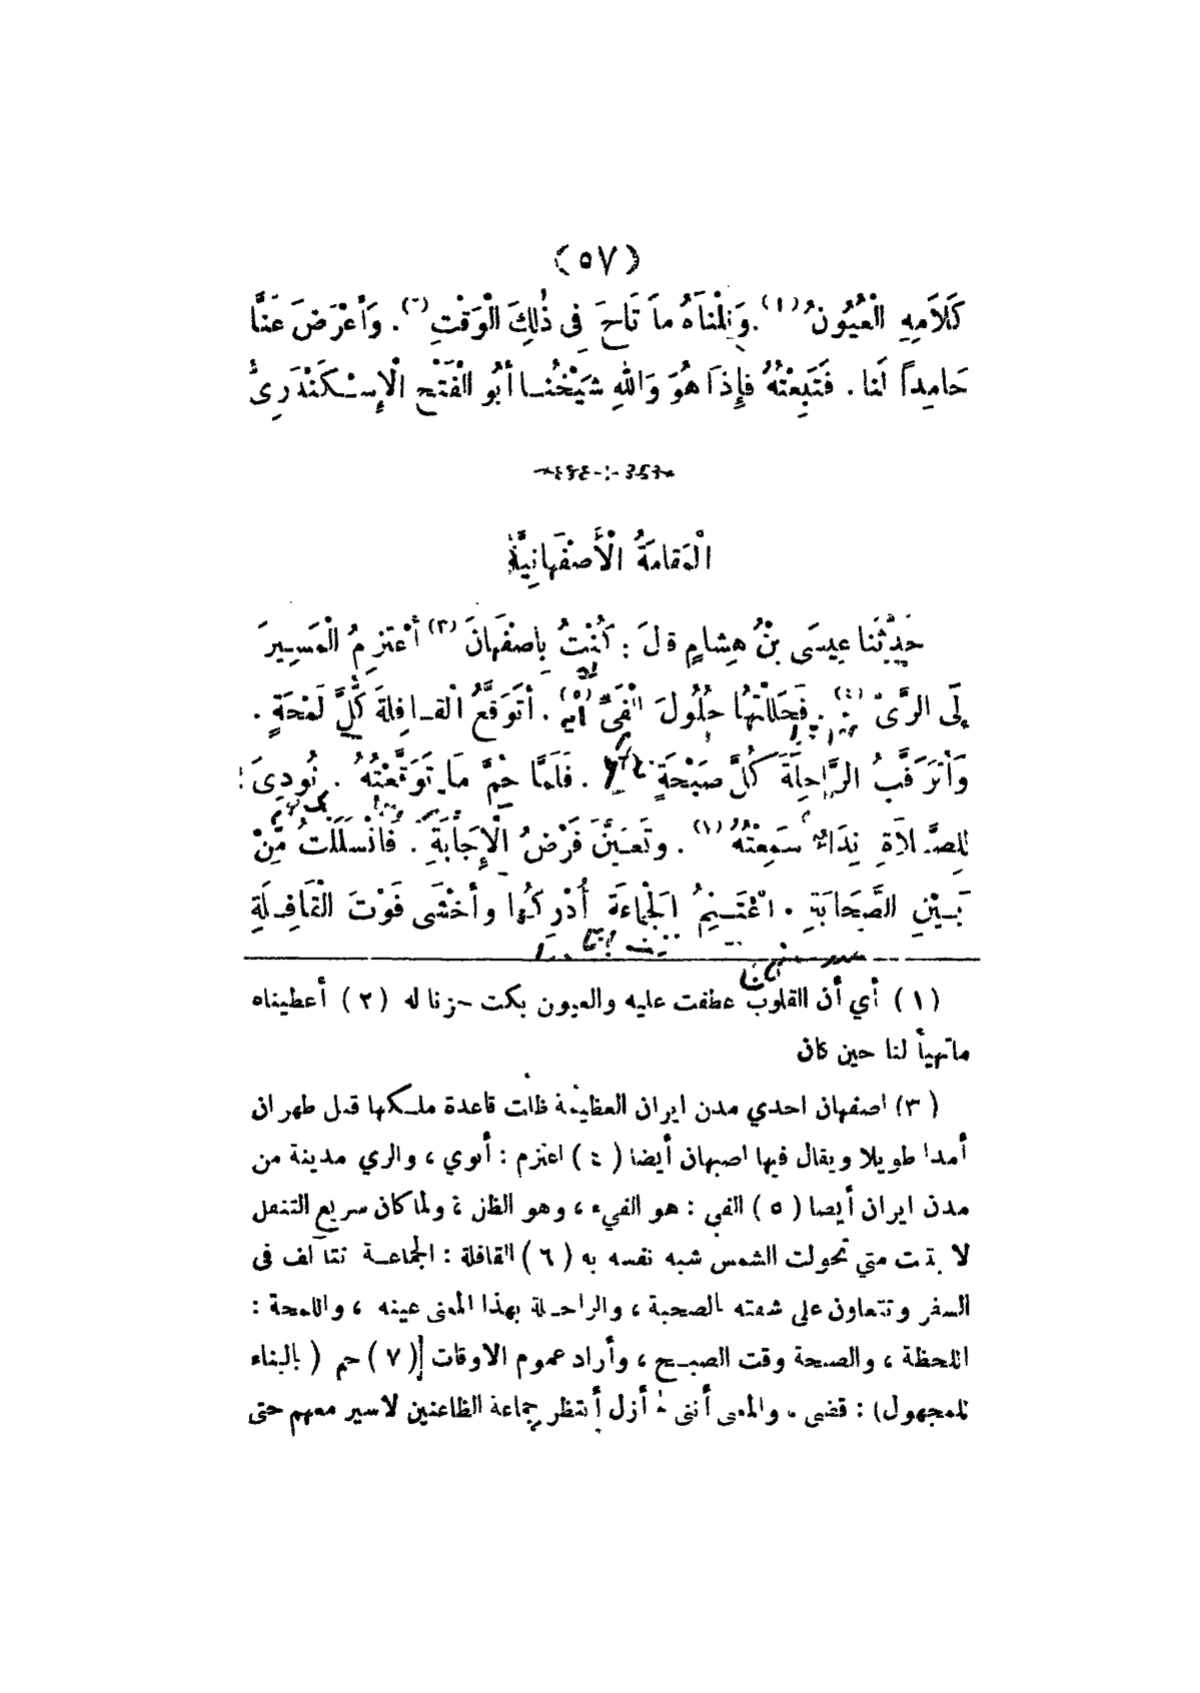 (٥٧)
كَلَامِهِ الْعُيُونُ (١). وَنِلْنَاهُ مَا تَاحَ فِي ذٰلِكَ الْوَقْتِ (٢). وَأَعْرَضَ عَنَّا
حَامِداً لَنا. فَتَبِعْتُهُ فَإِذَا هُوَ وَاللهِ شَيْخُنا أَبُو الْفَتْحِ الْإِسْكَنْدَرِىُّ
الْمَقَامَةُ الْأَصْفَهَانِيَّةُ
حَدَّثَنا عِيسَى بْنُ هِشامٍ قالَ: كُنْتُ بِإِصْفَهانَ (٣) أَعْتَزِمُ الْمَسِيرَ
إِلَى الرَّىِّ (٤). فَحَلَلْتُها حُلُولَ الْفَىِّ (٥). أَتَوَقَّعُ الْقافِلَةَ كُلَّ لَمْحَةٍ.
وَأَتَرَقَّبُ الرَّاحِلَةَ كُلَّ صَبْحَةٍ. فَلَمَّا حُمَّ مَا تَوَقَّعْتُهُ. نُودِىَ:
لِلصَّلَاةِ نِدَاءً سَمِعْتُهُ (٧). وتَعَيَّنَ فَرْضُ الْإِجَابَةِ. فَانْسَلَلْتُ مِنْ
بَيْنِ الصَّحَابَةِ. اغْتَنِمُ الْجَماعَةَ أُدْرِكُها وأَخْشَى فَوْتَ الْقَافِلَةِ
(١) أي أن القلوب عطفت عليه والعيون بكت حزنا له (٢) أعطيناه
ماتهيأ لنا حين كان
(٣) اصفهان احدي مدن ايران العظيمة ظلت قاعدة ملكها قبل طهران
أمدا طويلا ويقال فيها اصبهان أيضا (٤) اعتزم: أنوي، والري مدينة من
مدن ايران أيضا (٥) الفي: هو الفيء، وهو الظل، ولما كان سريع التنقل
لا يثبت متي تحولت الشمس شبه نفسه به (٦) القافلة: الجماعة تتآلف فى
السفر وتتعاون على شقته الصحبة، والراحلة بهذا المعنى عينه، واللمحة:
اللحظة، والصبحة وقت الصبح، وأراد عموم الاوقات (٧) حم (بالبناء
للمجهول): قضي. والمعنى أننى لم أزل أنتظر جماعة الظاعنين لاسير معهم حتى